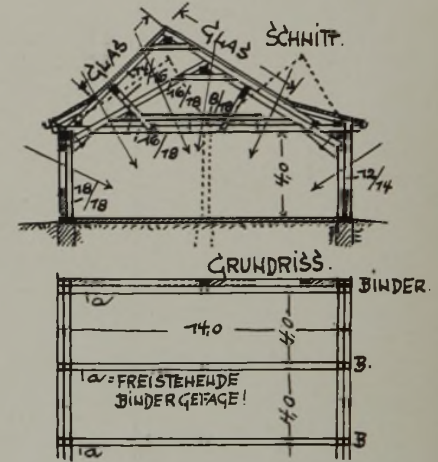 GLAS
GLAS
SCHNITT.
16/18
8/18
16/18
4,0
18/18
12/14
GRUNDRISS.
BINDER.
a
14,0
4,0
B.
a = FREISTEHENDE
BINDERGEFAGE!
4,0
B
a